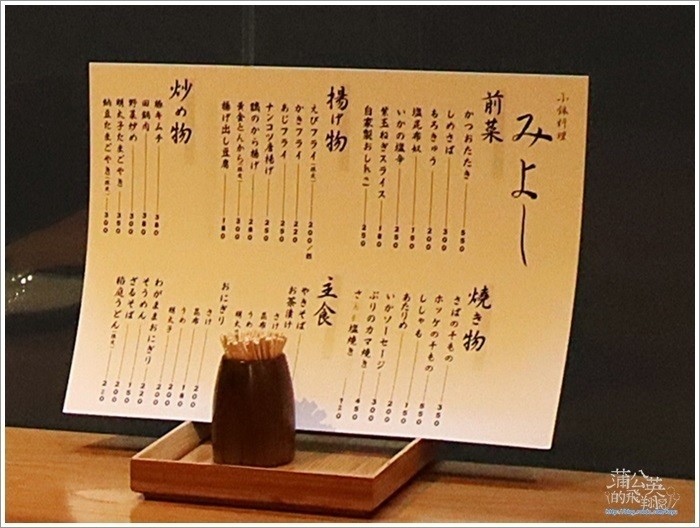 小鉢料理
みよし
前菜
かつおたたき 550
しめさば 300
もろきゅう 200
塩昆布奴 150
いかの塩辛 250
紫玉ねぎスライス 180
自家製おしんこ 250
揚げ物
えびフライ 200/
かきフライ 220
あじフライ 250
ナンコツ唐揚げ 250
鶏のから揚げ 280
黄金とんから 300
揚げ出し豆腐 180
炒め物
豚キムチ 380
回鍋肉 380
野菜炒め 300
明太子たまごやき 350
納豆たまごやき 300
焼き物
さばの干もの 350
ホッケの干もの 550
ししゃも 350
あたりめ 150
いかソーセージ 200
ぶりのカマ焼き 300
塩焼き 450
120
主食
やきそば
お茶漬け
さけ
うめ
明太
おにぎり
さけ 200
昆布
うめ 180
明太子 200
わがままおにぎり 200
そうめん 220
ざるそば 150
稲庭うどん 200
蒲公英
的飛翔